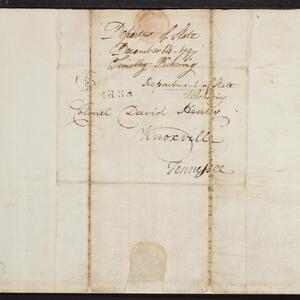 Department of State
December 14 - 797
Timothy Pickering
FREE
Department of State
Pickering
Colonel David Henley
Knoxville
Tennessee